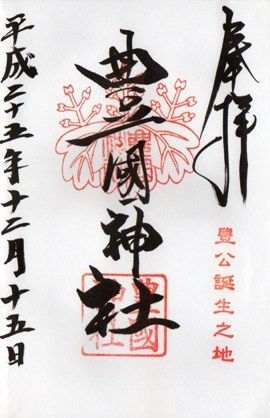 奉拝
豐公誕生之地
豊國神社
豊國神社
平成二十五年十二月十五日